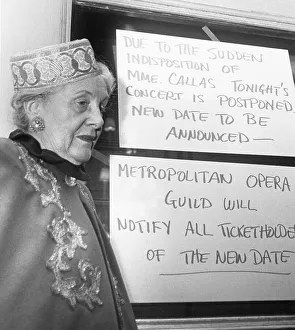 DUE TO THE SUDDEN
INDISPOSITION OF
MME. CALLAS TONIGHT'S
CONCERT IS POSTPONED
NEW DATE TO BE
ANNOUNCED —
METROPOLITAN OPERA
GUILD WILL
NOTIFY ALL TICKETHOLDE
OF THE NEW DATE